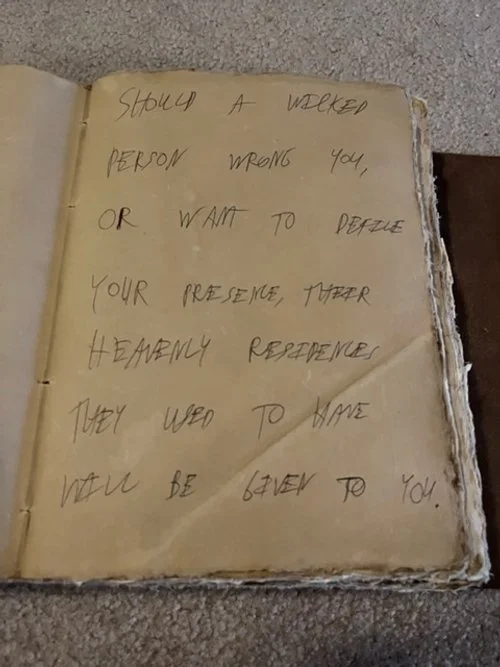 SHOULD A WICKED
PERSON WRONG YOU,
OR WANT TO DEFILE
YOUR PRESENCE, THEIR
HEAVENLY RESIDENCES
THEY USED TO HAVE
WILL BE GIVEN TO YOU.